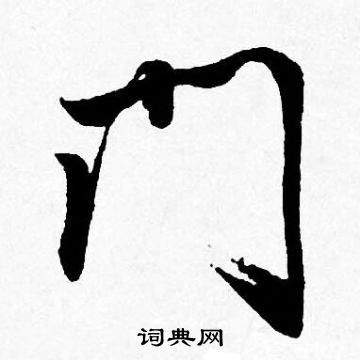 门
词典网